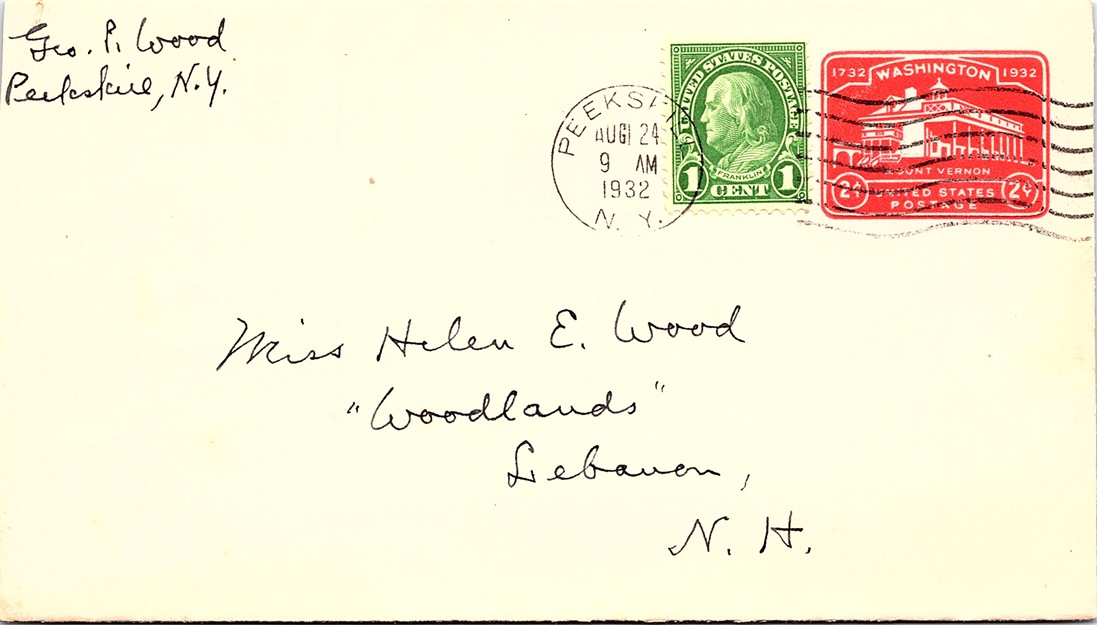 Geo. P. Wood
Peekskill, N.Y.
PEEKSKILL
AUG 24
9 AM
1932
N. Y.
UNITED STATES POSTAGE
FRANKLIN
1 CENT 1
1732 WASHINGTON 1932
MOUNT VERNON
2¢ UNITED STATES 2¢
POSTAGE
Miss Helen E. Wood
"Woodlands"
Lebanon,
N. H.